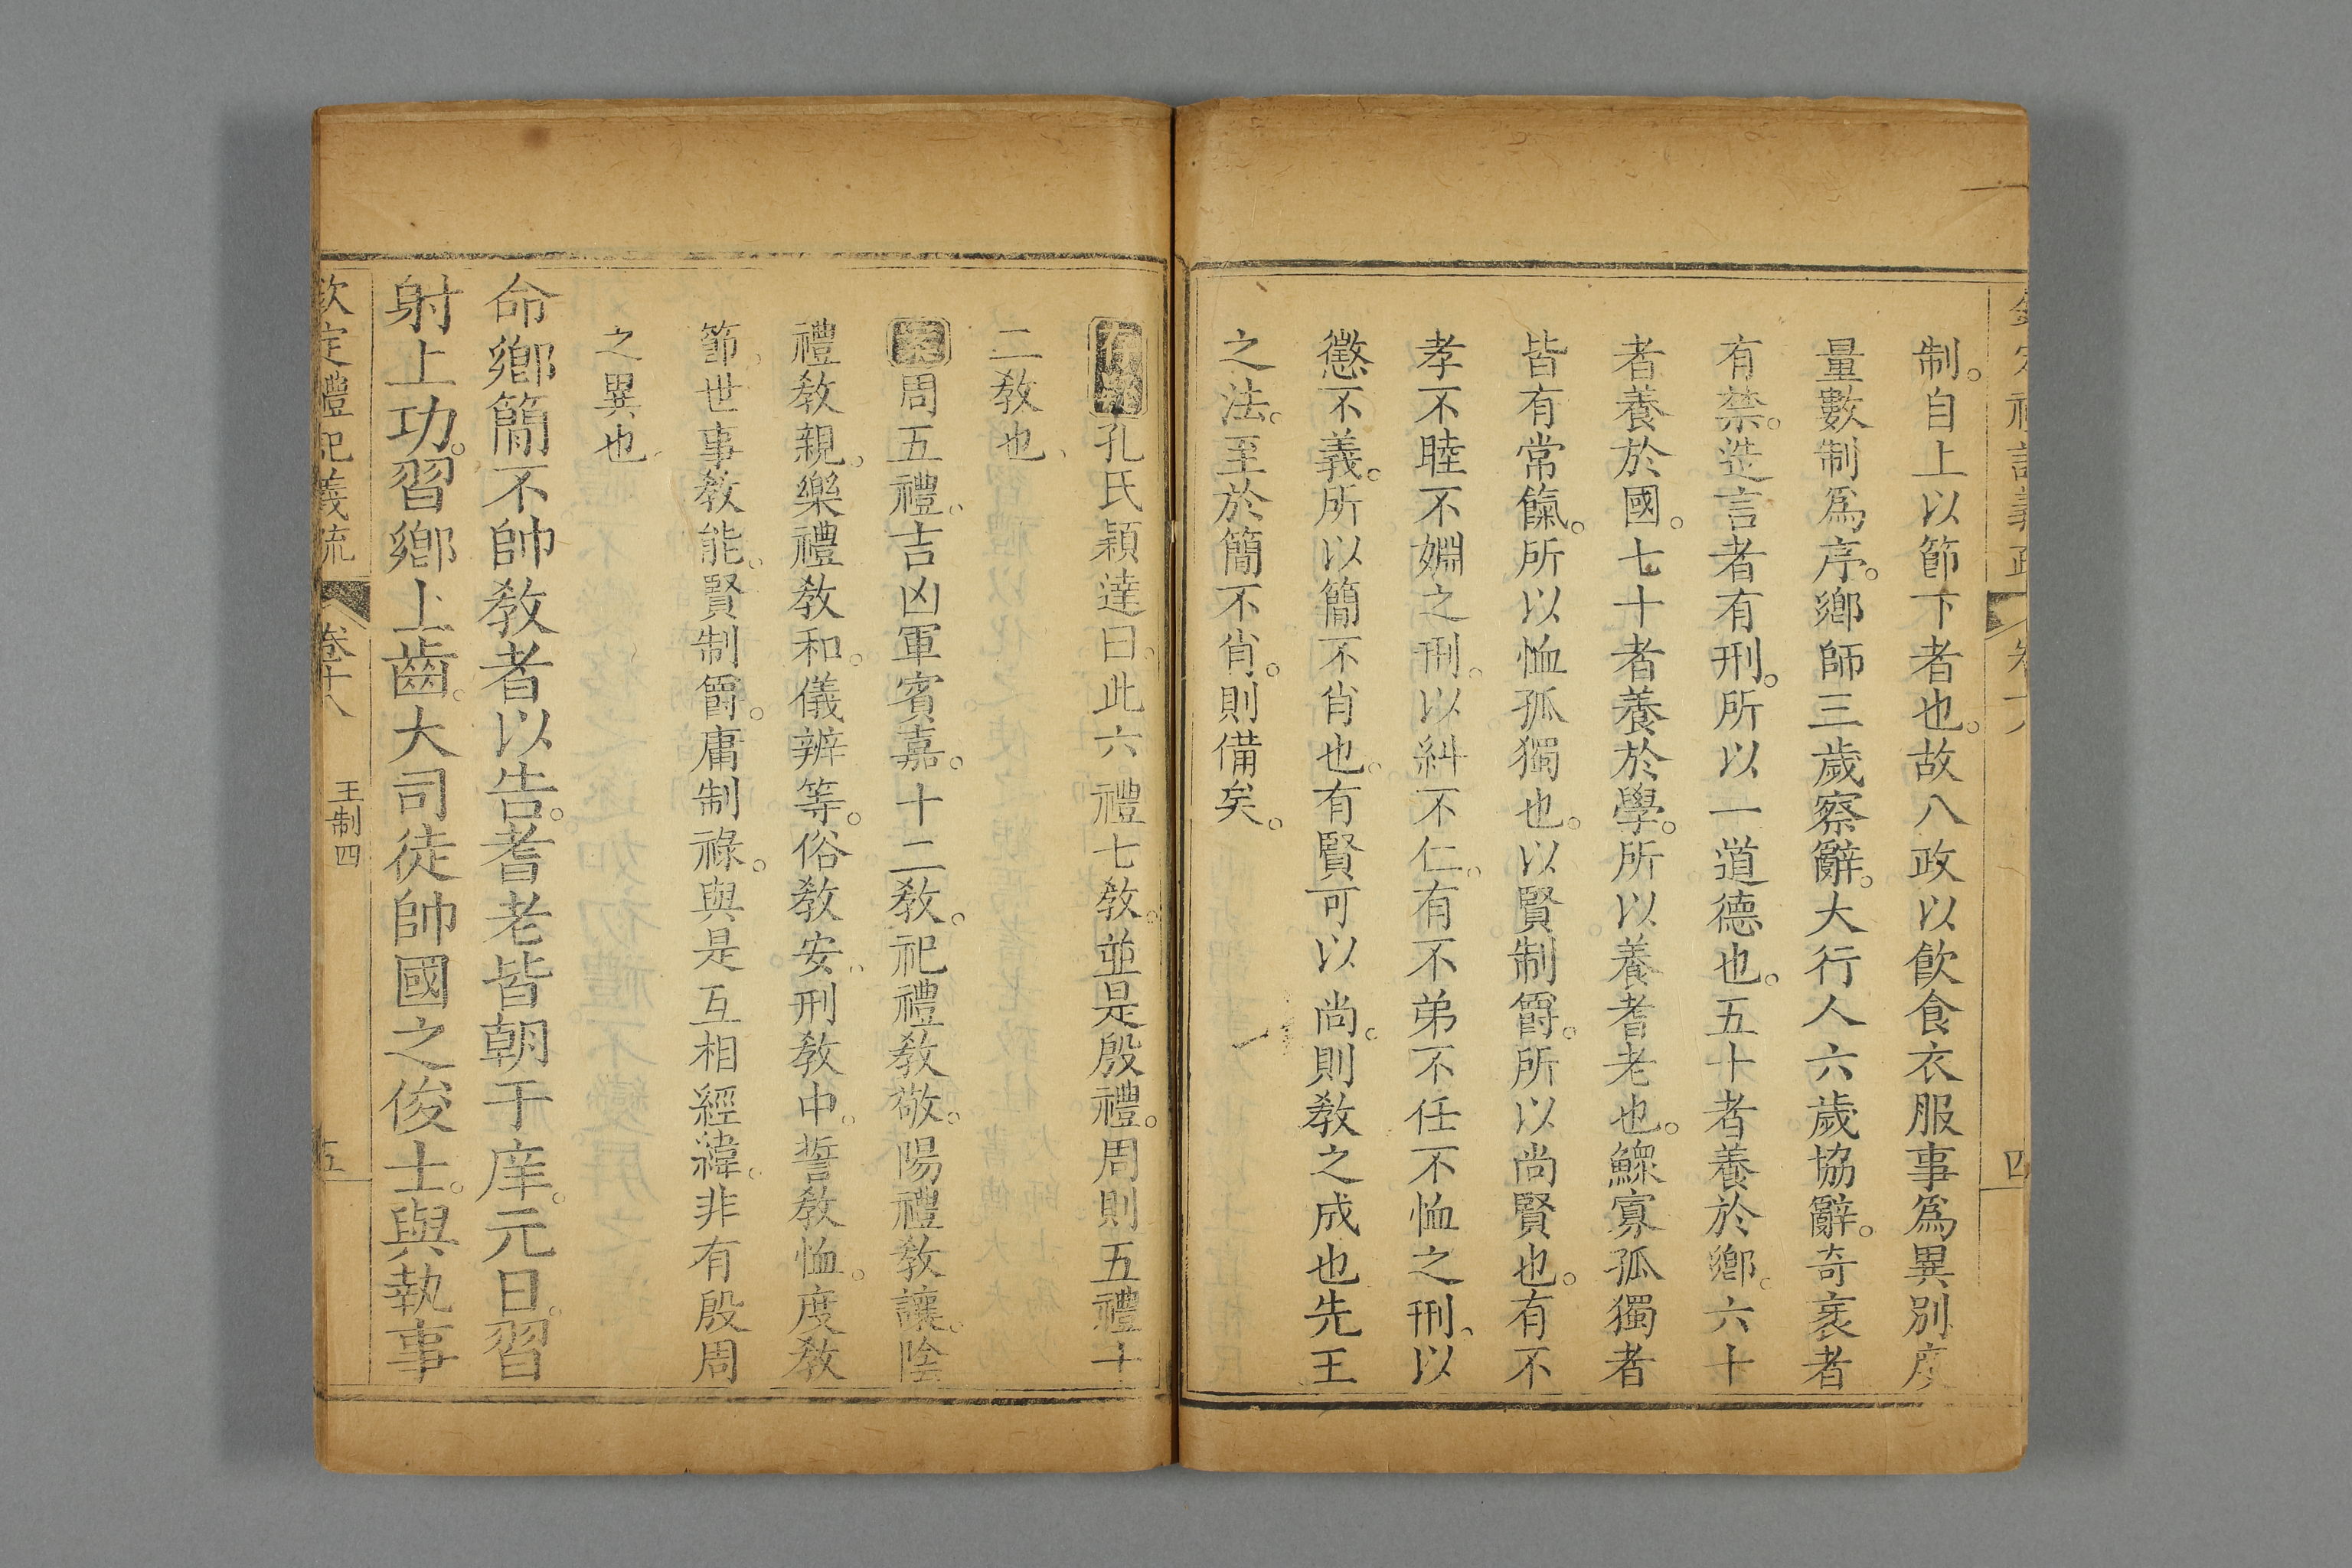 制。自上以節下者也。故八政以飮食衣服事爲異別度
量數制爲序。鄉師三歲察辭。大行人六歲協辭。奇衺者
有禁。造言者有刑。所以一道德也。五十者養於鄉。六十
者養於國。七十者養於學。所以養耆老也。鰥寡孤獨者
皆有常餼。所以恤孤獨也。以賢制爵。所以尚賢也。有不
孝不睦不婣之刑。以糾不仁。有不弟不任不恤之刑。以
懲不義。所以簡不肖也。有賢可以尚。則敎之成也先王
之法。至於簡不肖。則備矣。
孔氏穎達曰。此六禮七敎。並是殷禮。周則五禮十
二敎也。
案周五禮。吉凶軍賓嘉。十二敎。祀禮敎敬。陽禮敎讓。陰
禮敎親。樂禮敎和。儀辨等。俗敎安。刑敎中。誓敎恤。度敎
節。世事敎能。賢制爵。庸制祿。與是互相經緯。非有殷周
之異也。
命鄉簡不帥敎者以告。耆老皆朝于庠。元日。習
射上功。習鄉上齒。大司徒帥國之俊士。與執事
欽定禮記義疏 卷十八 王制四 五